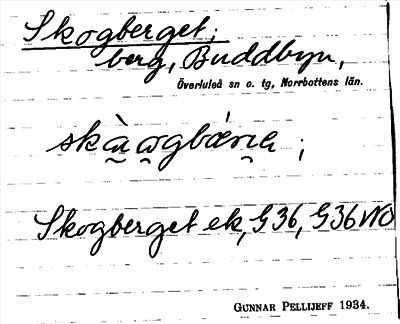 Skogberget;
berg, Buddbyn,
Överluleå sn o. tg, Norrbottens län.
Skogberget ek, G36, G36 NO
GUNNAR PELLIJEFF 1934.